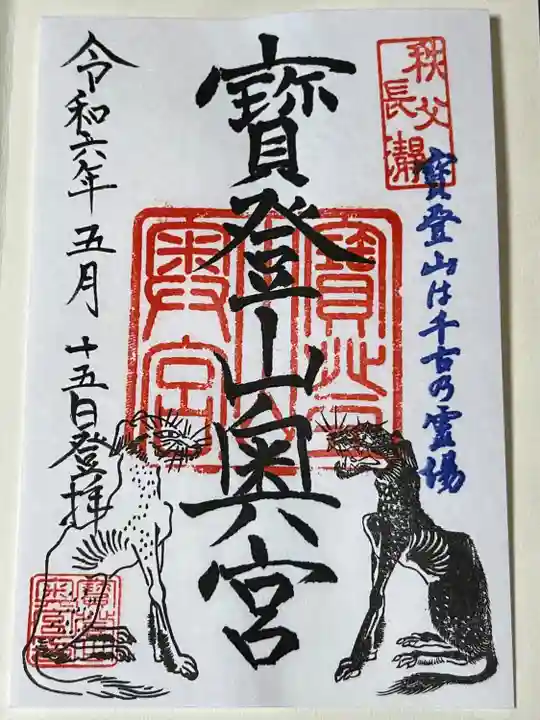 秩父
長瀞
寶登山は千古乃霊場
寶登山奥宮
寶登山
奥宮
令和六年五月十五日登拝